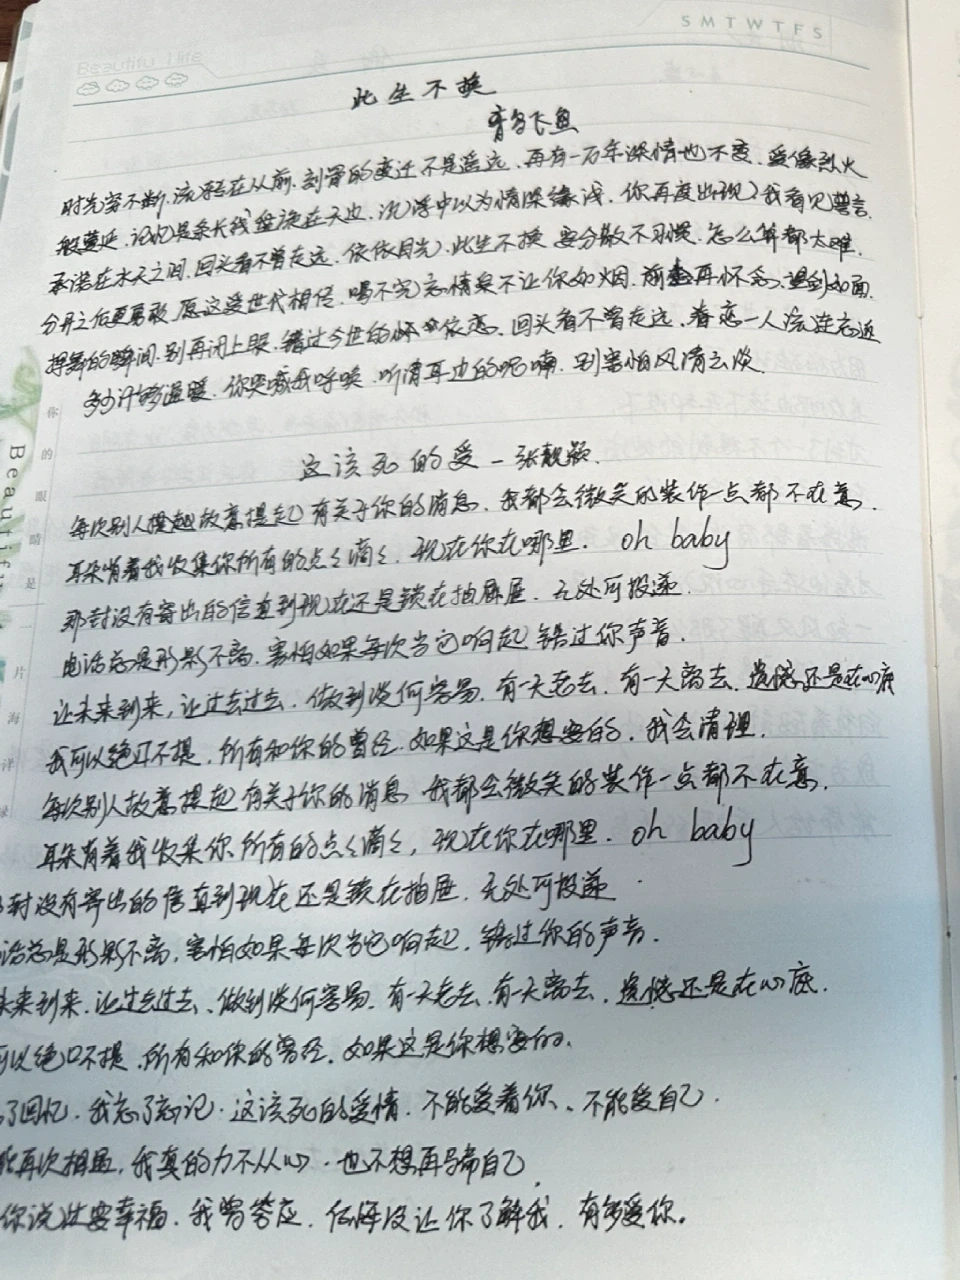 SMTWTFS
Beautiful life
此生不换
青鸟飞鱼
时光穿不断.流转在从前.刻骨的变迁不是遥远.再有一万年深情也不变.爱像烈火
般蔓延.记忆是条长线盘旋在天边.沉浮中以为情深缘浅.你再度出现.我看见誓言.
承诺在水天之间.回头看不曾走远.依依目光.此生不换.要分散不习惯.怎么算都太难.
分开之后更勇敢.愿这爱世代相传.喝不完忘情泉不让你如烟.前尘再怀念.望到如面.
挥舞的瞬间.别再闭上眼.错过今世的怀 依恋.回头看不曾走远.眷恋一人流连忘返
多少计够温暖.你突破我呼唤.听清耳边的呢喃.别害怕风清云淡.
这该死的爱－张靓颖.
每次别人提起故意提起有关于你的消息.我都会微笑的装作一点都不在意.
耳朵背着我收集你所有的点点滴滴.现在你在哪里. oh baby
那封没有寄出的信直到现在还是锁在抽屉屉.无处可投递.
电话总是形影不离.害怕如果每次当它响起错过你声音.
让未来到来,让过去过去.做到谈何容易.有一天老去.有一天离去.遗憾还是在心底
我可以绝口不提.所有和你的曾经.如果这是你想要的.我会清理.
每次别人故意提起有关于你的消息 我都会微笑的装作一点都不在意.
耳朵背着我收集你所有的点点滴滴,现在你在哪里. oh baby
封没有寄出的信直到现在还是锁在抽屉.无处可投递.
话总是形影不离,害怕如果每次当它响起,错过你的声音.
未来到来.让过去过去、做到谈何容易.有一天老去.有一天离去.遗憾还是在心底.
可以绝口不提.所有和你的曾经.如果这是你想要的、
了回忆.我忘了忘记.这该死的爱情.不能爱着你、不能爱自己.
能再次相遇.我真的力不从心.也不想再骗自己.
你说过要幸福.我曾答应.但却没让你了解我.有多爱你。
你的眼睛是
片海洋
Beautiful